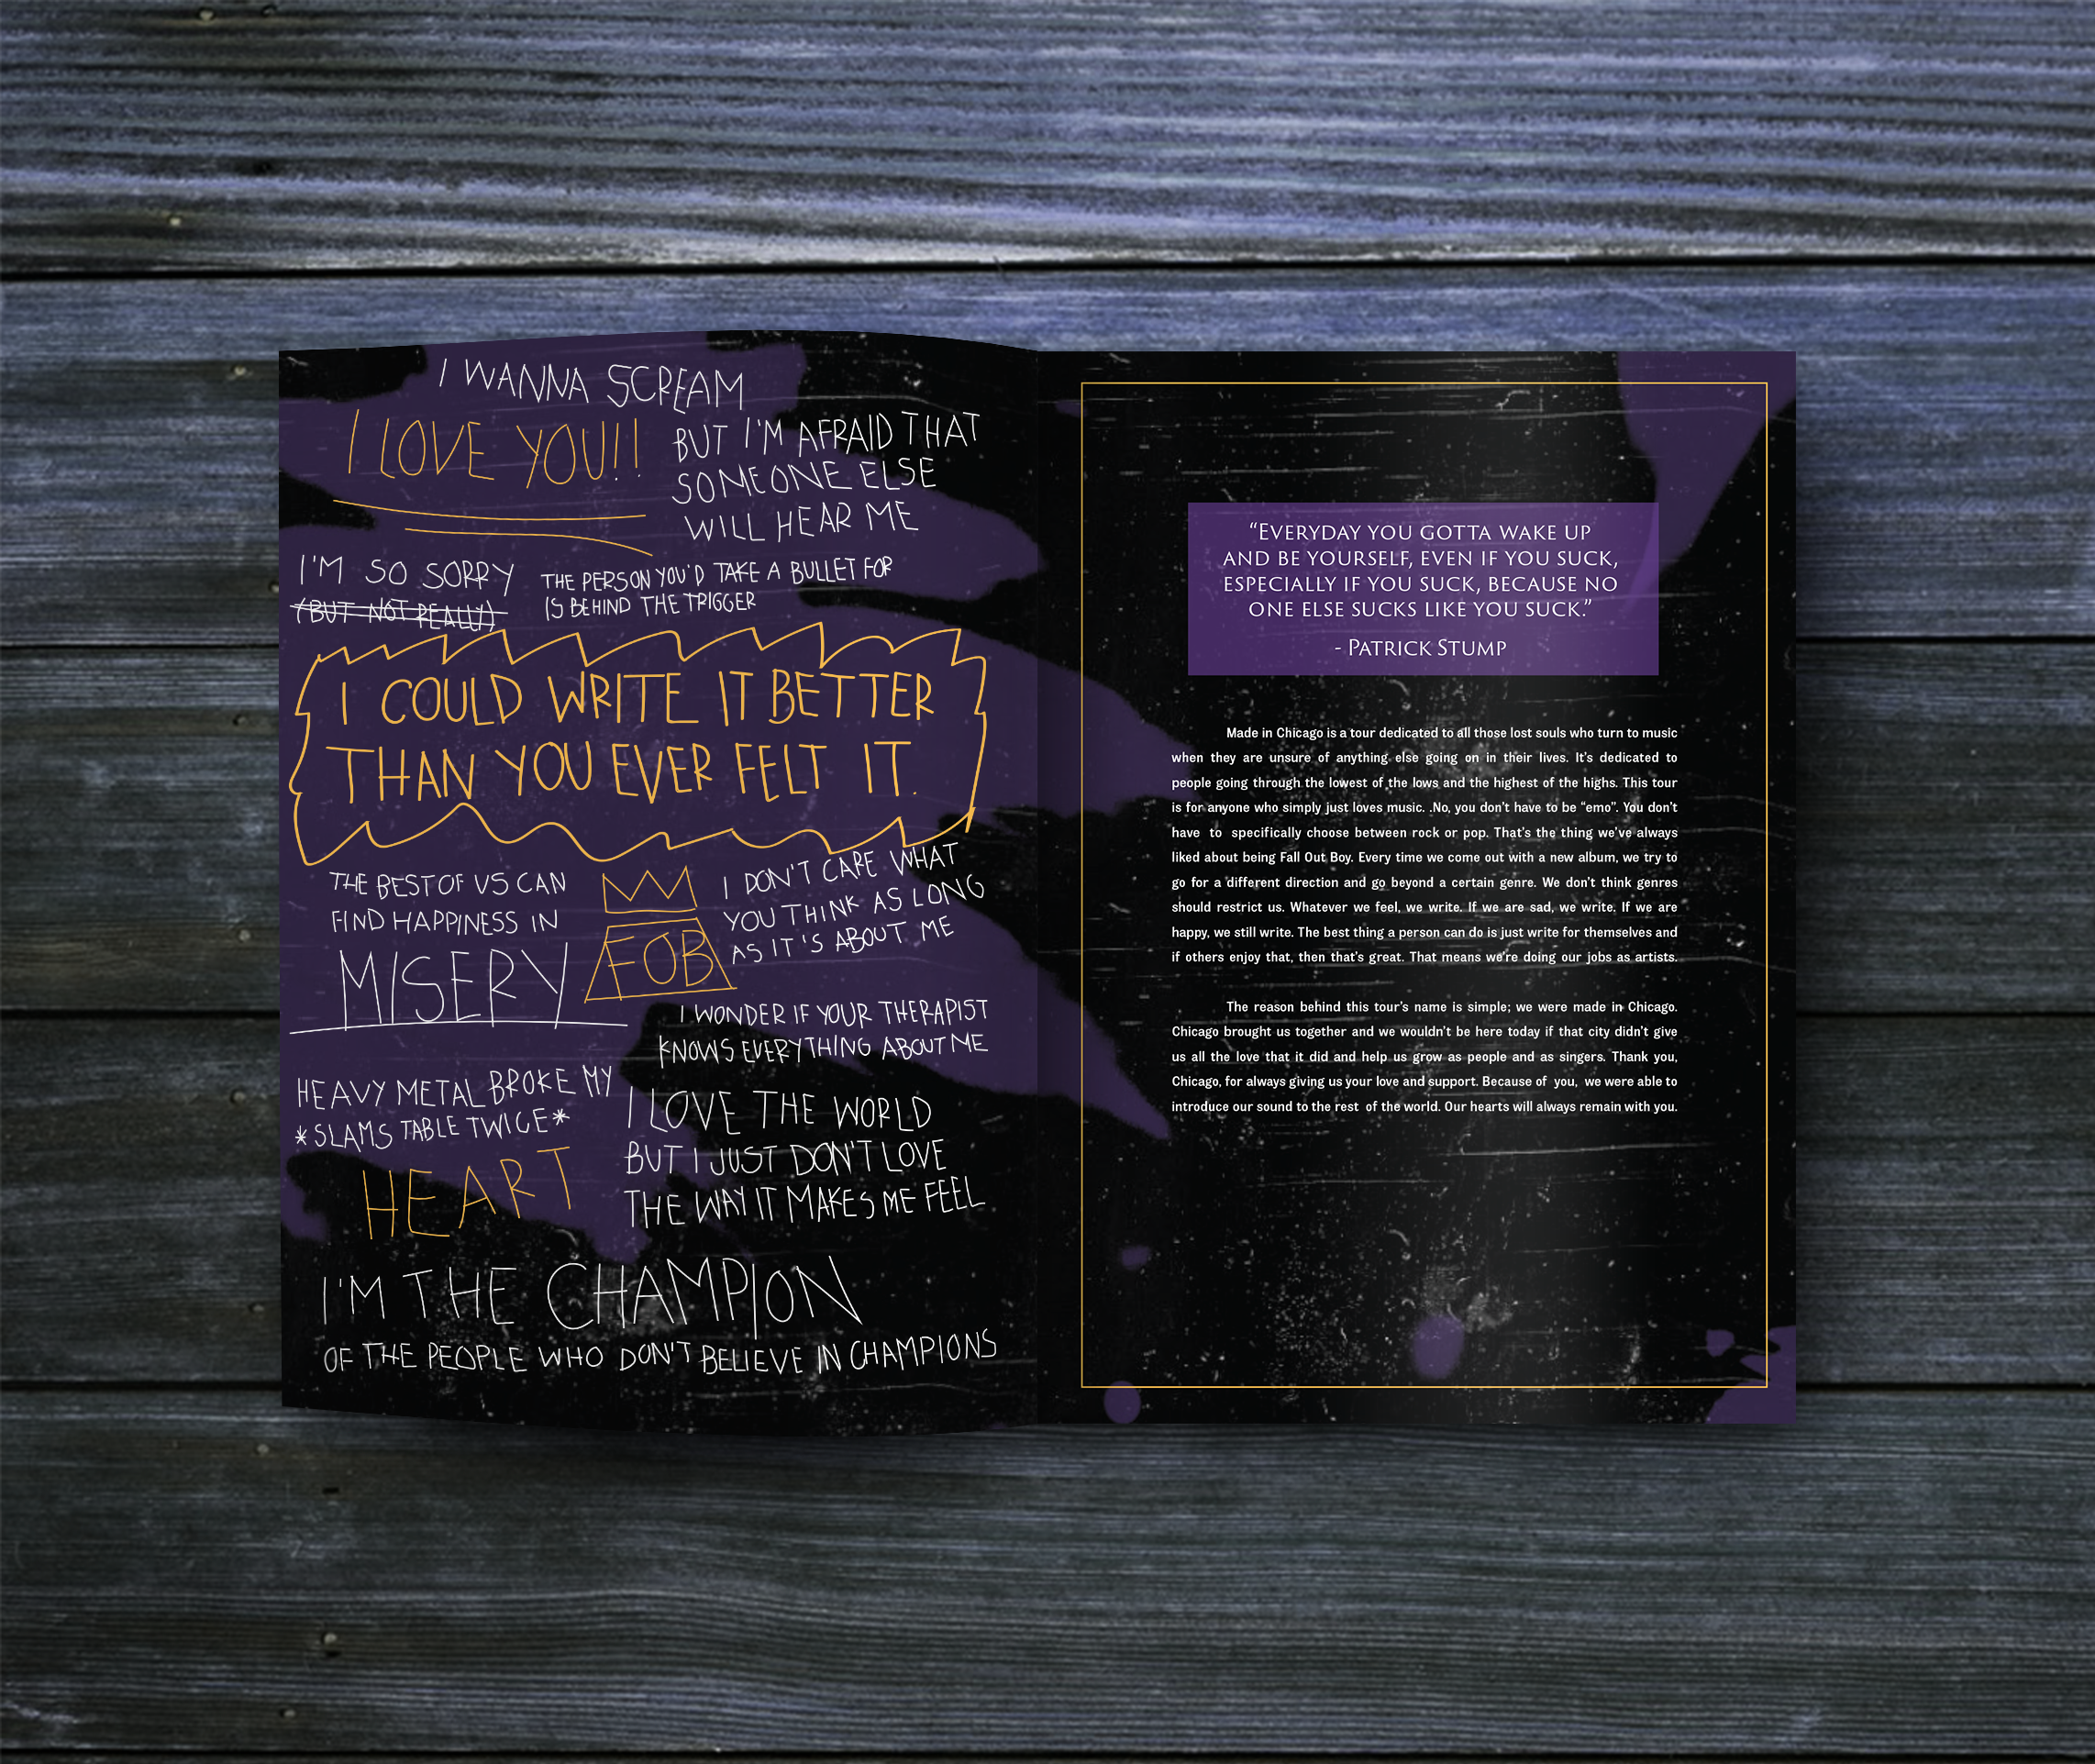 I WANNA SCREAM
I LOVE YOU!!
BUT I'M AFRAID THAT
SOMEONE ELSE
WILL HEAR ME
I'M SO SORRY
(BUT NOT REALLY)
THE PERSON YOU'D TAKE A BULLET FOR
IS BEHIND THE TRIGGER
I COULD WRITE IT BETTER
THAN YOU EVER FELT IT.
THE BEST OF US CAN
FIND HAPPINESS IN
MISERY
FOB
I DON'T CARE WHAT
YOU THINK AS LONG
AS IT'S ABOUT ME
I WONDER IF YOUR THERAPIST
KNOWS EVERYTHING ABOUT ME
HEAVY METAL BROKE MY
*SLAMS TABLE TWICE*
HEART
I LOVE THE WORLD
BUT I JUST DON'T LOVE
THE WAY IT MAKES ME FEEL
I'M THE CHAMPION
OF THE PEOPLE WHO DON'T BELIEVE IN CHAMPIONS
“EVERYDAY YOU GOTTA WAKE UP
AND BE YOURSELF, EVEN IF YOU SUCK,
ESPECIALLY IF YOU SUCK, BECAUSE NO
ONE ELSE SUCKS LIKE YOU SUCK.”
- PATRICK STUMP
Made in Chicago is a tour dedicated to all those lost souls who turn to music
when they are unsure of anything else going on in their lives. It's dedicated to
people going through the lowest of the lows and the highest of the highs. This tour
is for anyone who simply just loves music. .No, you don't have to be “emo”. You don't
have to specifically choose between rock or pop. That's the thing we've always
liked about being Fall Out Boy. Every time we come out with a new album, we try to
go for a different direction and go beyond a certain genre. We don't think genres
should restrict us. Whatever we feel, we write. If we are sad, we write. If we are
happy, we still write. The best thing a person can do is just write for themselves and
if others enjoy that, then that's great. That means we're doing our jobs as artists.
The reason behind this tour's name is simple; we were made in Chicago.
Chicago brought us together and we wouldn't be here today if that city didn't give
us all the love that it did and help us grow as people and as singers. Thank you,
Chicago, for always giving us your love and support. Because of you, we were able to
introduce our sound to the rest of the world. Our hearts will always remain with you.